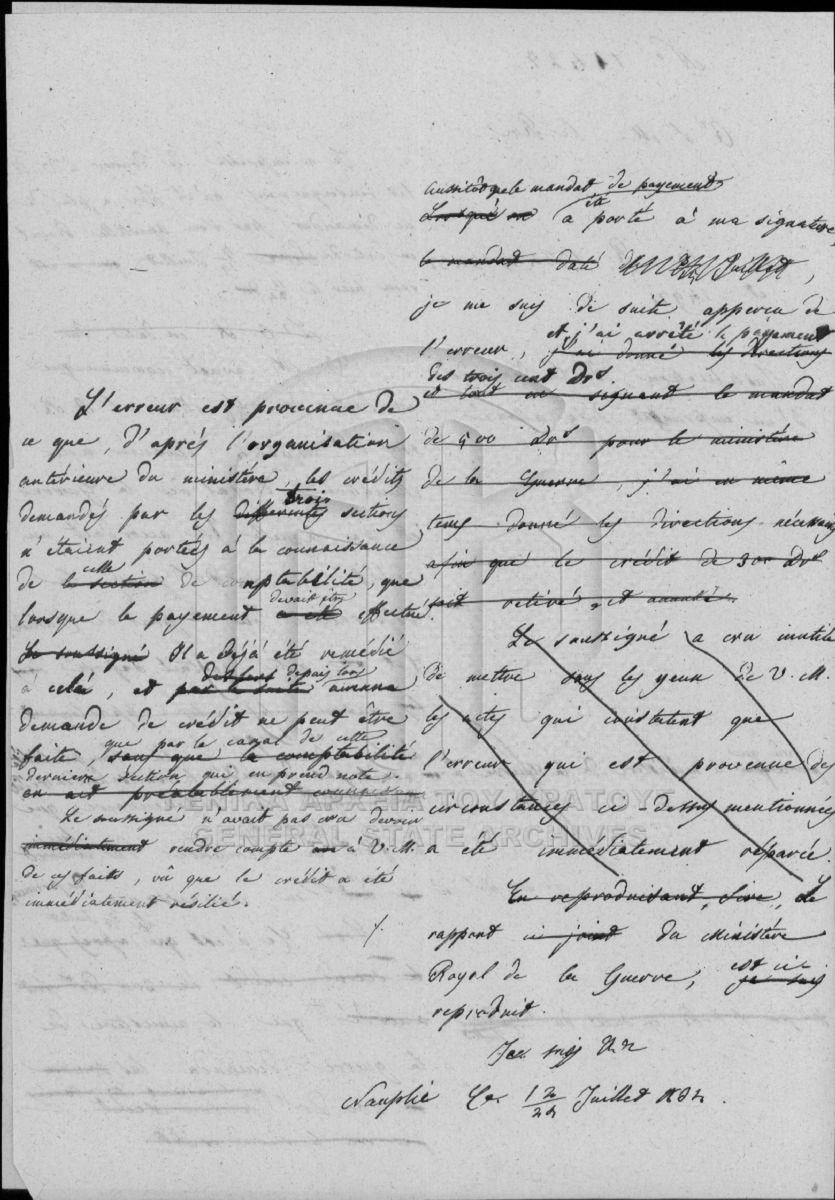 aussitôt que le mandat de payement
Lorsqué on a été porté à ma signature
le mandat daté Juillet,
je me suis de suite apperçu de
l'erreur, et j'ai arrêté le payement
j'ai donné les directions
des trois cent Drs
et tout en signant le mandat
de 500 Drs pour le ministère
de la Guerre, j'ai en même
tems donné les directions nécessaires
afin que le crédit de 300 Drs
soit retiré et annulé.
Le soussigné a cru inutile
de mettre sous les yeux de V. M.
les actes qui constatent que
l'erreur qui est provenue des
circonstances ci-dessus mentionnées
a été immédiatement réparée.
En reproduisant, Sire, Le
rapport ci joint du Ministère
Royal de la Guerre, est ci
je suis
reproduit.
Je suis
Nauplie Le 12/24 Juillet 1834.
L'erreur est provenue de
ce que, d'après l'organisation
antérieure du ministère, les crédits
demandés par les différentes trois sections
n'étaient portés à la connaissance
de celle la section de comptabilité, que
lorsque le payement devait être a été effectué.
Le soussigné Il a déjà été remédié
à cela, et dès lors depuis lors
par la suite aucune
demande de crédit ne peut être
faite, que par le canal de cette
sans que la comptabilité
dernière section qui en prend note.
en ait préalablement connaissance
Le soussigné n'avait pas cru devoir
immédiatement rendre compte à V. M.
de ces faits, vû que le crédit a été
immédiatement résilié.
ΓΕΝΙΚΑ ΑΡΧΕΙΑ ΤΟΥ ΚΡΑΤΟΥΣ
GENERAL STATE ARCHIVES